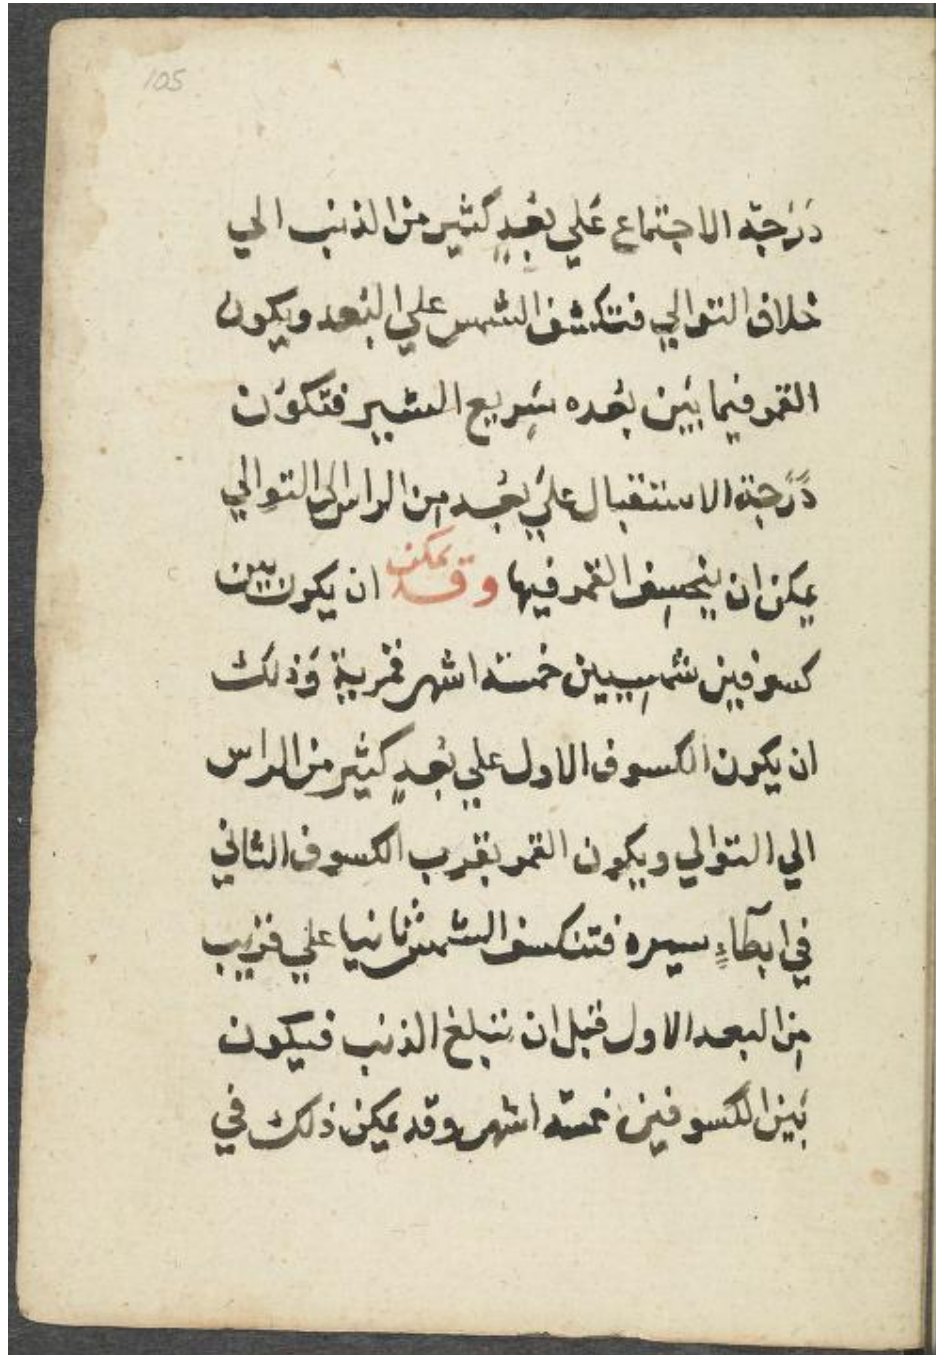 105
دَرَجَة الاجتماع عَلي بُعْدٍ كثير من الذنب الي
خلاف التوالي فتكسف الشمس علي البُعد ويكون
القمر فيما بَيْن بعُده سَرِيع السَيير فتكوُن
دَرَجة الاستقبال عليَ بعُبد مِن الراس الى التوالي
يمكن ان ينخسِف القمر فيها وقد يمكن ان يكون بين
كسوفين شمسِيين خمسة اشهر قمرية وَذلك
ان يكون الكسوف الاول علي بُعدٍ كثير من الراس
الي التوالي ويكون القمر بقرب الكسوف الثاني
في ابطآءٍ سيره فتنكسف الشمس ثانيا علي قريب
مِن البعد الاول قبل ان تبلغ الذنب فيكون
بَين الكسوفين خمسة اشهر وقد يمكن ذلك في